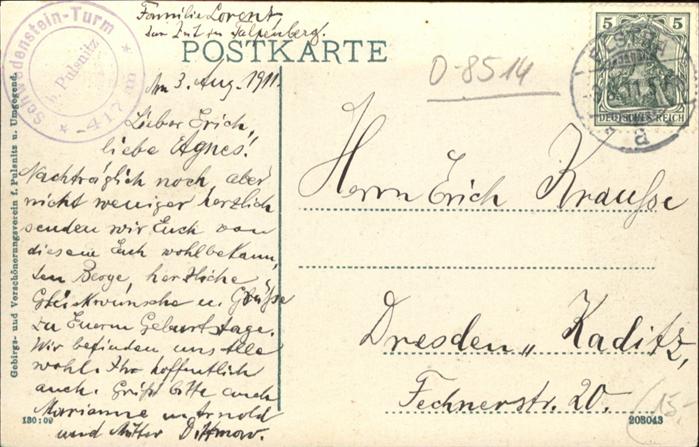 Familie Lorenz
zur Zeit in Talpenberg.
Schwedenstein-Turm
b. Pulsnitz
* 417 m *
POSTKARTE
5 5
DEUTSCHES REICH
ELSTRA
O-8514
Am 3. Aug. 1911.
Lieber Erich,
liebe Agnes!
Nachträglich noch, aber
nicht weniger herzlich
senden wir Euch von
diesem Euch wohlbekann
ten Berge, herzliche
Glückwünsche u. Grüße
zu Euerm Geburtstage.
Wir befinden uns alle
wohl. Ihr hoffentlich
auch. Grüßt bitte auch
Marianne u. Arnold
und Mutter Dittmar.
Herrn Erich Krauße
Dresden „ Kaditz,
Fechnerstr. 20.
(15.-
Gebirgs- und Verschönerungsverein f. Pulsnitz u. Umgegend.
130:09
203043